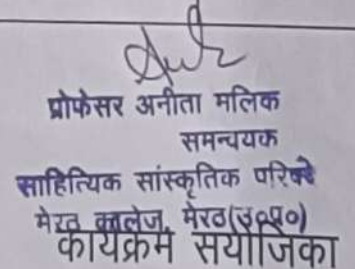 प्रोफेसर अनीता मलिक
समन्वयक
साहित्यिक सांस्कृतिक परिषद
मेरठ कालेज, मेरठ(उ०प्र०)
कार्यक्रम संयोजिका